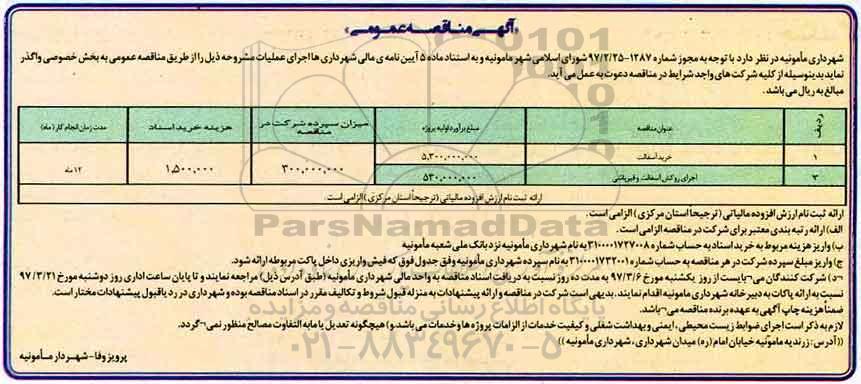 «آگهی مناقصه عمومی»
شهرداری مأمونیه در نظر دارد با توجه به مجوز شماره ۱۳۸۷-۹۷/۲/۲۵ شورای اسلامی شهر مامونیه و به استناد ماده ۵ آیین نامه ی مالی شهرداری ها اجرای عملیات مشروحه ذیل را از طریق مناقصه عمومی به بخش خصوصی واگذار
نماید بدینوسیله از کلیه شرکت های واجد شرایط در مناقصه دعوت به عمل می آید.
مبالغ به ریال می باشد.
ردیف عنوان مناقصه مبلغ برآورد اولیه پروژه میزان سپرده شرکت در مناقصه هزینه خرید اسناد مدت زمان انجام کار (ماه)
۱ خرید آسفالت ۵,۳۰۰,۰۰۰,۰۰۰ ۳۰۰,۰۰۰,۰۰۰ ۱,۵۰۰,۰۰۰ ۱۲ ماه
۳ اجرای روکش آسفالت و قیرپاشی ۵۳۰,۰۰۰,۰۰۰
ارائه ثبت نام ارزش افزوده مالیاتی (ترجیحاً استان مرکزی) الزامی است.
ارائه ثبت نام ارزش افزوده مالیاتی (ترجیحاً استان مرکزی) الزامی است.
الف) ارائه رتبه بندی معتبر برای شرکت در مناقصه الزامی است.
ب) واریز هزینه مربوط به خرید اسناد به حساب شماره ۳۱۰۰۰۰۱۷۲۷۰۰۸ به نام شهرداری مأمونیه نزد بانک ملی شعبه مأمونیه
ج) واریز مبلغ سپرده شرکت در هر مناقصه به حساب شماره ۳۱۰۰۰۰۱۷۳۲۰۰۱ به نام سپرده شهرداری مأمونیه وفق جدول فوق که فیش واریزی داخل پاکت مربوطه ارائه شود.
د) شرکت کنندگان می¬بایست از روز یکشنبه مورخ ۹۷/۳/۶ به مدت ده روز نسبت به دریافت اسناد مناقصه به واحد مالی شهرداری مأمونیه (طبق آدرس ذیل) مراجعه نمایند و تا پایان ساعت اداری روز دوشنبه مورخ ۹۷/۳/۲۱
نسبت به ارائه پاکات به دبیرخانه شهرداری مامونیه اقدام نمایند. بدیهی است شرکت در مناقصه و ارائه پیشنهادات به منزله قبول شروط و تکالیف مقرر در اسناد مناقصه بوده و شهرداری در رد یا قبول پیشنهادات مختار است.
ضمناً هزینه چاپ آگهی به عهده برنده مناقصه می¬باشد.
لازم به ذکر است اجرای ضوابط زیست محیطی، ایمنی و بهداشت شغلی و کیفیت خدمات از الزامات پروژه ها و خدمات می باشد و) هیچگونه تعدیل یا مابه التفاوت مصالح منظور نمی¬گردد.
((آدرس: زرندیه مأمونیه خیابان امام (ره) میدان شهرداری، شهرداری مأمونیه))
پرویز وفا - شهردار مأمونیه
ParsNamadData
پایگاه اطلاع رسانی مناقصه و مزایده
۰۲۱-۸۸۳۴۹۶۷۰-۵